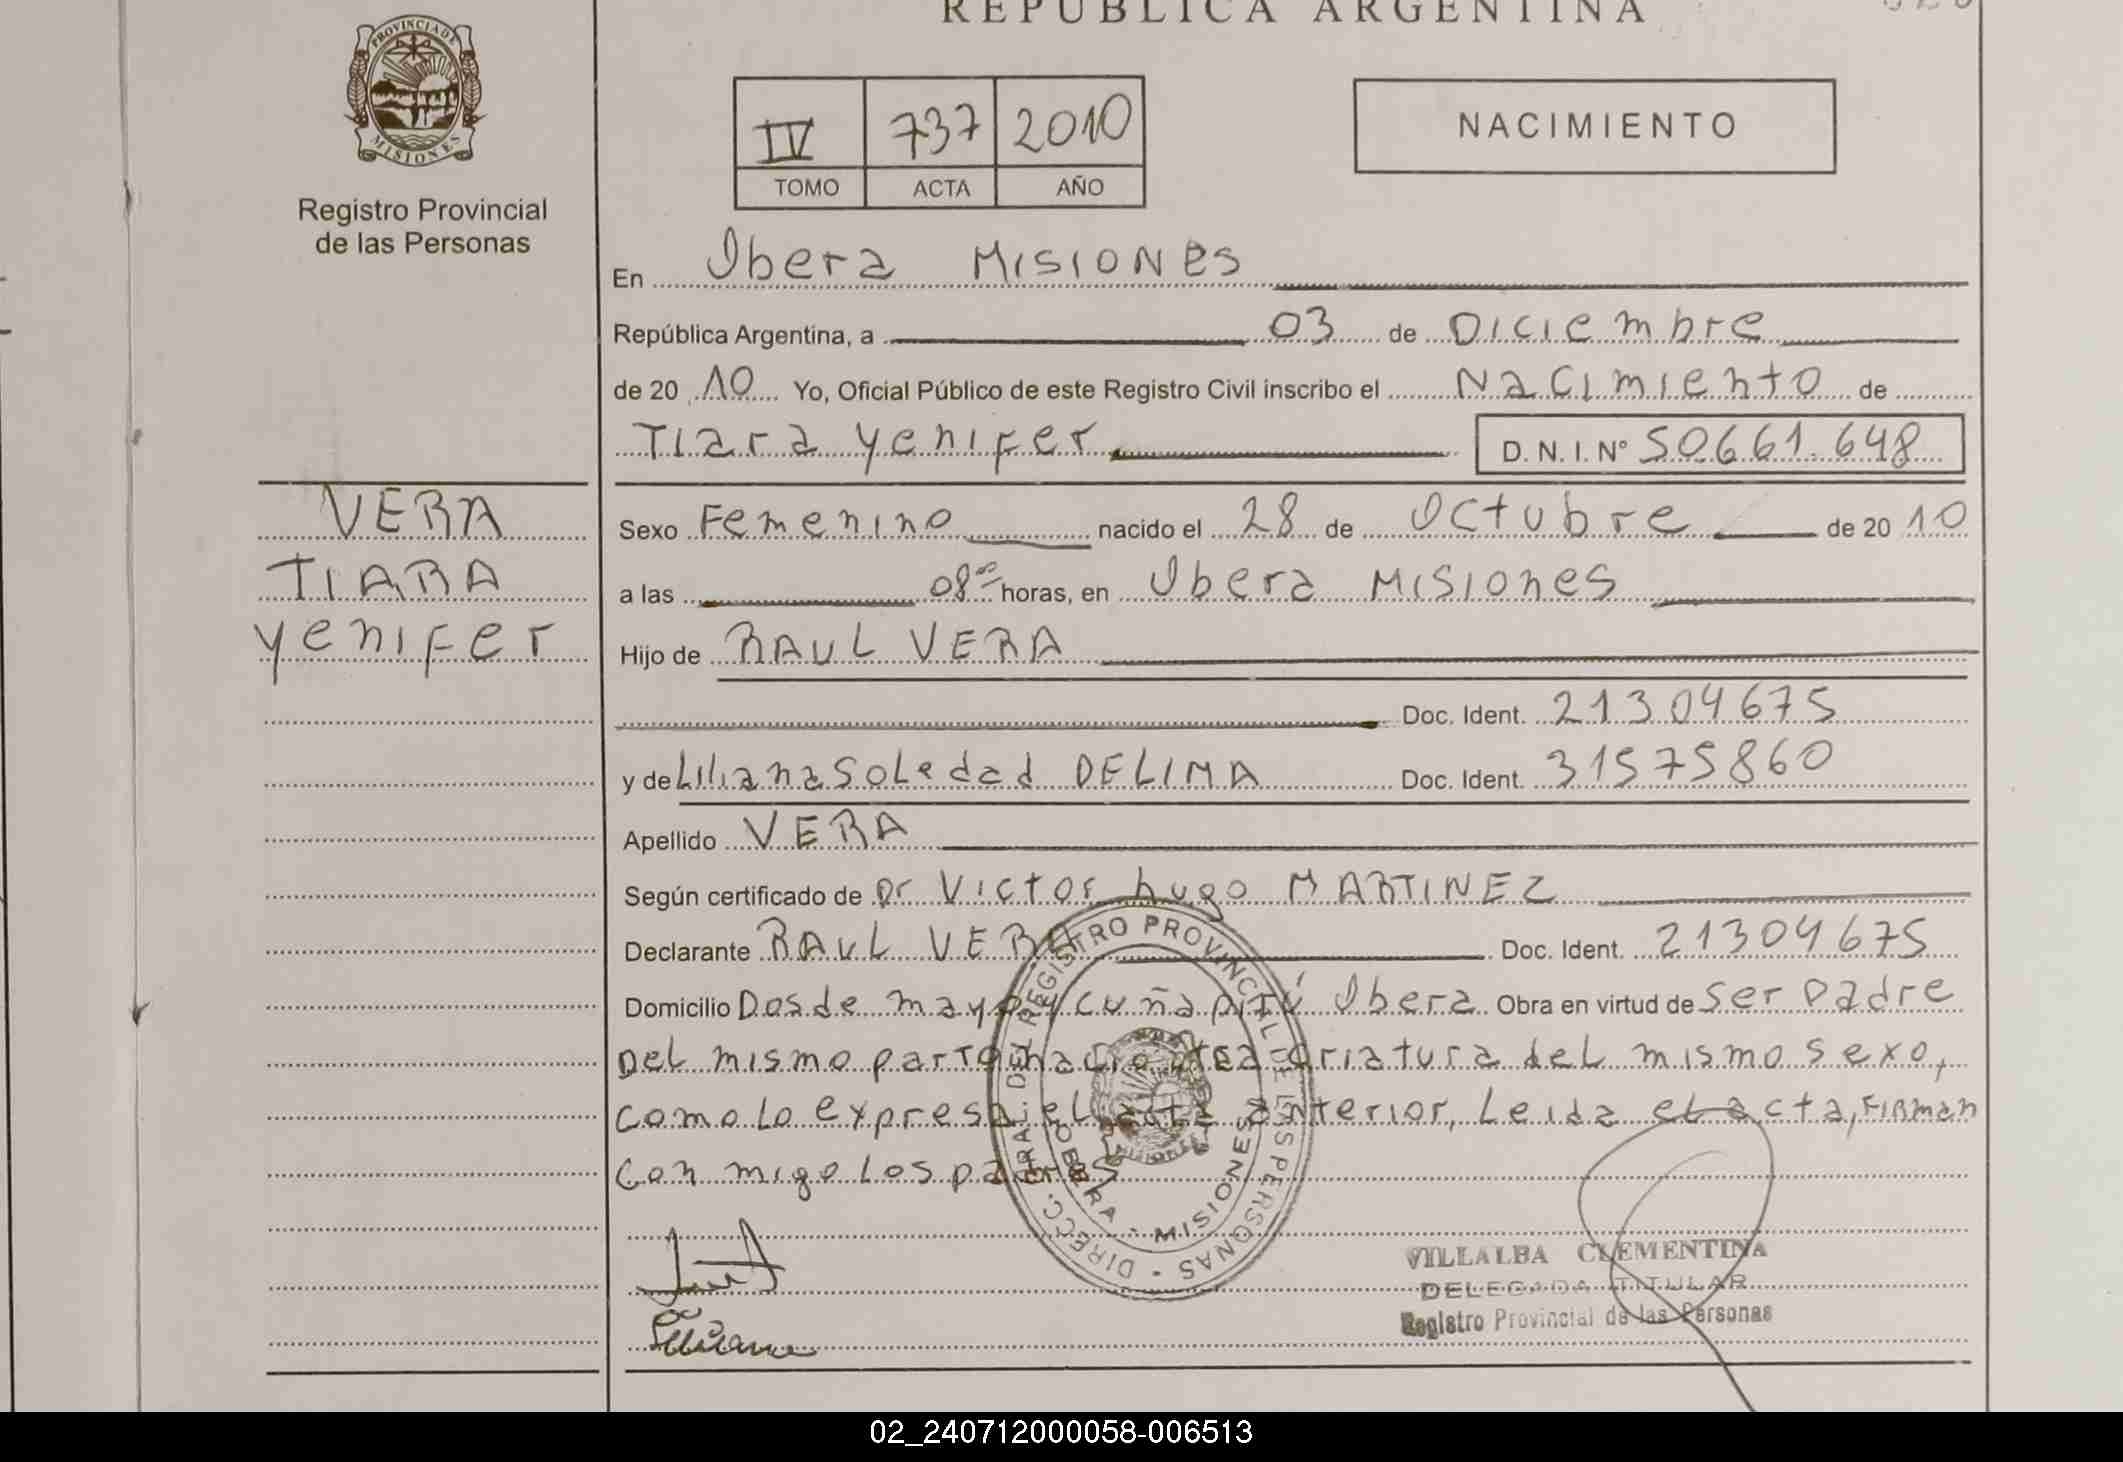 REPÚBLICA ARGENTINA
PROVINCIA DE
MISIONES
Registro Provincial
de las Personas
IV 737 2010
TOMO ACTA AÑO
NACIMIENTO
En Obera Misiones
República Argentina, a 03 de Diciembre
de 20 10 Yo, Oficial Público de este Registro Civil inscribo el Nacimiento de
Tiara Yenifer D. N. I. Nº 50661.648
VERA
TIARA
Yenifer
Sexo Femenino nacido el 28 de Octubre de 20 10
a las 08⁰⁰ horas, en Obera Misiones
Hijo de RAUL VERA
Doc. Ident. 21304675
y de Liliana Soledad DELIMA Doc. Ident. 31575860
Apellido VERA
Según certificado de Dr Victor hugo MARTINEZ
Declarante RAUL VERA Doc. Ident. 21304675
Domicilio Dos de mayo y cuña pirú Obera Obra en virtud de ser padre
Del mismo parto nacio otra criatura del mismo sexo,
como lo expresa el acta anterior, Leida el acta, FIRMAN
con migo los padres
DIRECC. GRAL. DEL REGISTRO PROVINCIAL DE LAS PERSONAS
OBERA - MISIONES
Liliana
VILLALBA CLEMENTINA
DELEGADA TITULAR
Registro Provincial de las Personas
02_240712000058-006513